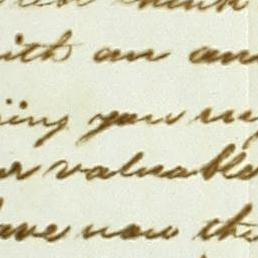 think
ith an an
iing you my
er valuable
have now the